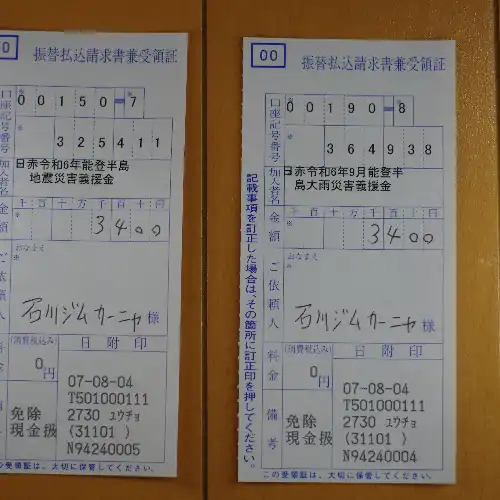 0
振替払込請求書兼受領証
口座記号番号
00150-7
325411
加入者名
日赤令和6年能登半島
地震災害義援金
金額
千百十万千百十円
3400
おなまえ
※
ご依頼人
石川ジムカーニャ様
料金
(消費税込み)
0円
日附印
07-08-04
T501000111
免除 2730 ユウチョ
現金扱 (31101 )
N94240005
この受領証は、大切に保管してください。
00
振替払込請求書兼受領証
口座記号番号
00190-8
364938
加入者名
日赤令和6年9月能登半
島大雨災害義援金
金額
千百十万千百十円
3400
おなまえ
※
ご依頼人
石川ジムカーニャ様
料金
(消費税込み)
0円
日附印
備考
07-08-04
T501000111
免除 2730 ユウチョ
現金扱 (31101 )
N94240004
この受領証は、大切に保管してください。
記載事項を訂正した場合は、その箇所に訂正印を押してください。